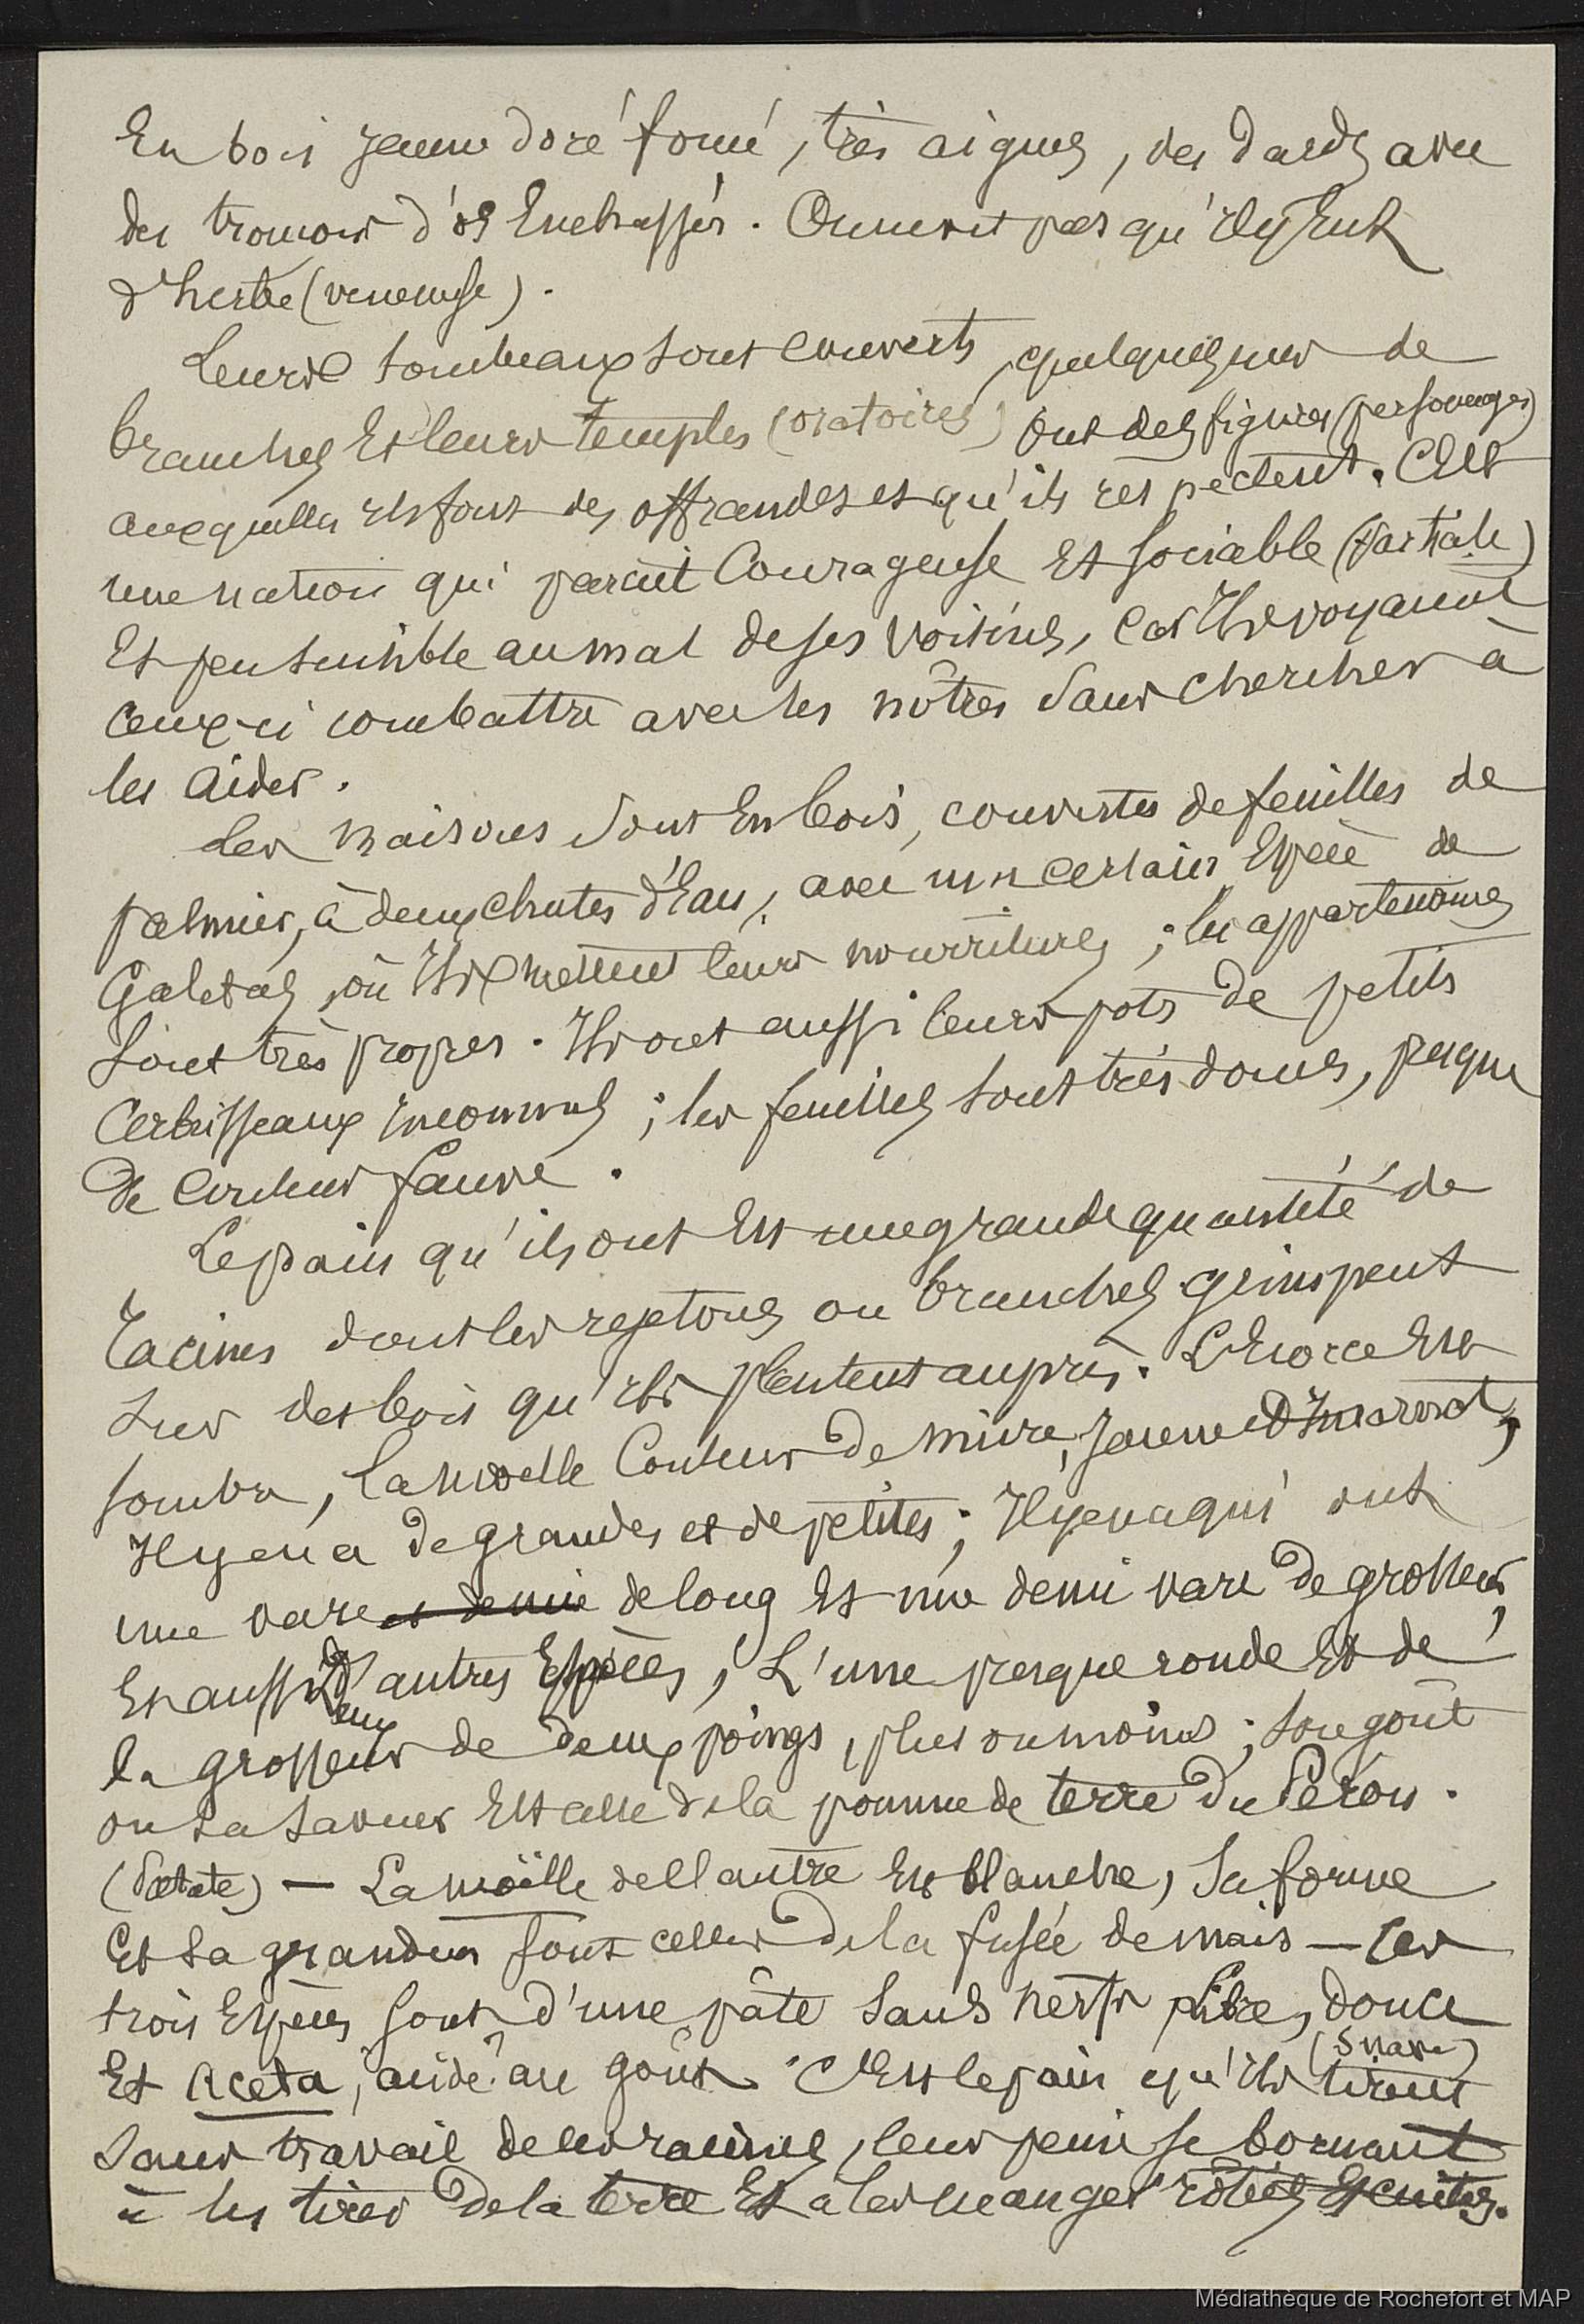 En bois jaune doré foncé, très aigues, des dards avec
des tronçons d'os enchassés. On ne vit pas qu'il y eut
d'herbe (veneneuse).
Leurs tombeaux sont couverts, quelques uns de
branches et leurs temples (oratoires) ont des figures (personnages)
auxquelles ils font des offrandes et qu'ils respectent. C'est
une nation qui parait courageuse et sociable
et peu sensible au mal de ses voisins, car ils voyaient
ceux-ci combattre avec les nôtres sans chercher à
les aider.
Les maisons sont en bois, couvertes de feuilles de
palmier, à deux chutes d'Eau, avec un certain espèce de
Galetas, où ils mettent leurs nourritures ; les appartements
sont très propres. Ils ont aussi leurs pots de petits
arbrisseaux inconnus ; les feuilles sont très douces, presque
de couleur fauve.
Le pain qu'ils ont est une grande quantité de
racines dont les rejetons ou branches grimpent
sur des bois qu'ils plantent auprès. L'Ecorce est
sombre, la moelle couleur de mûre, jaune
Il y en a de grandes et de petites ; Il y en a qui ont
une vare et demie de long et une demi vare de grosseur,
Et aussi deux autres espèces, L'une presque ronde et de
la grosseur de deux poings, plus ou moins ; son goût
ou sa saveur est celle de la pomme de terre du Pérou.
(Patate) — La moëlle de l'autre est blanche, sa forme
et sa grandeur sont celles de la fusée de maïs — Ces
trois espèces sont d'une pâte sans nerfs fibre, douce
Et Aceta, acide? au goût. C'est le pain qu'ils tirent
(Suave)
sans travail de ces racines, leur peine se bornant
à les tirer de la terre et à les manger rôties et cuites.
Médiathèque de Rochefort et MAP